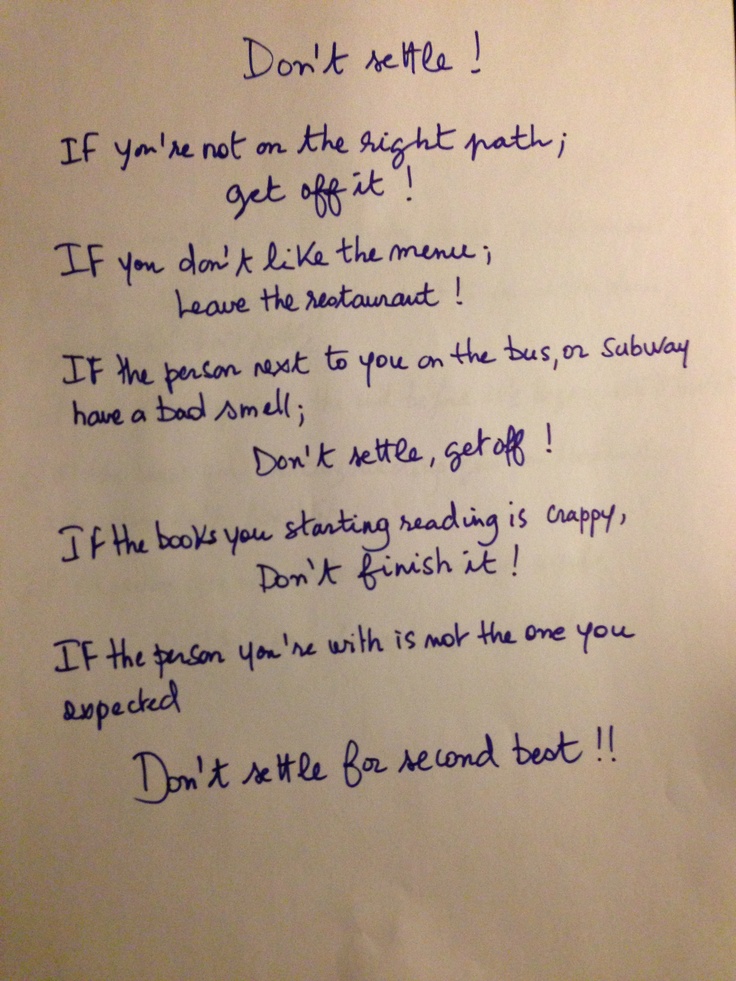 Don't settle !
If you're not on the right path;
get off it !
If you don't like the menu;
Leave the restaurant !
If the person next to you on the bus, or subway
have a bad smell;
Don't settle, get off !
If the books you starting reading is crappy,
Don't finish it !
If the person you're with is not the one you
expected
Don't settle for second best !!